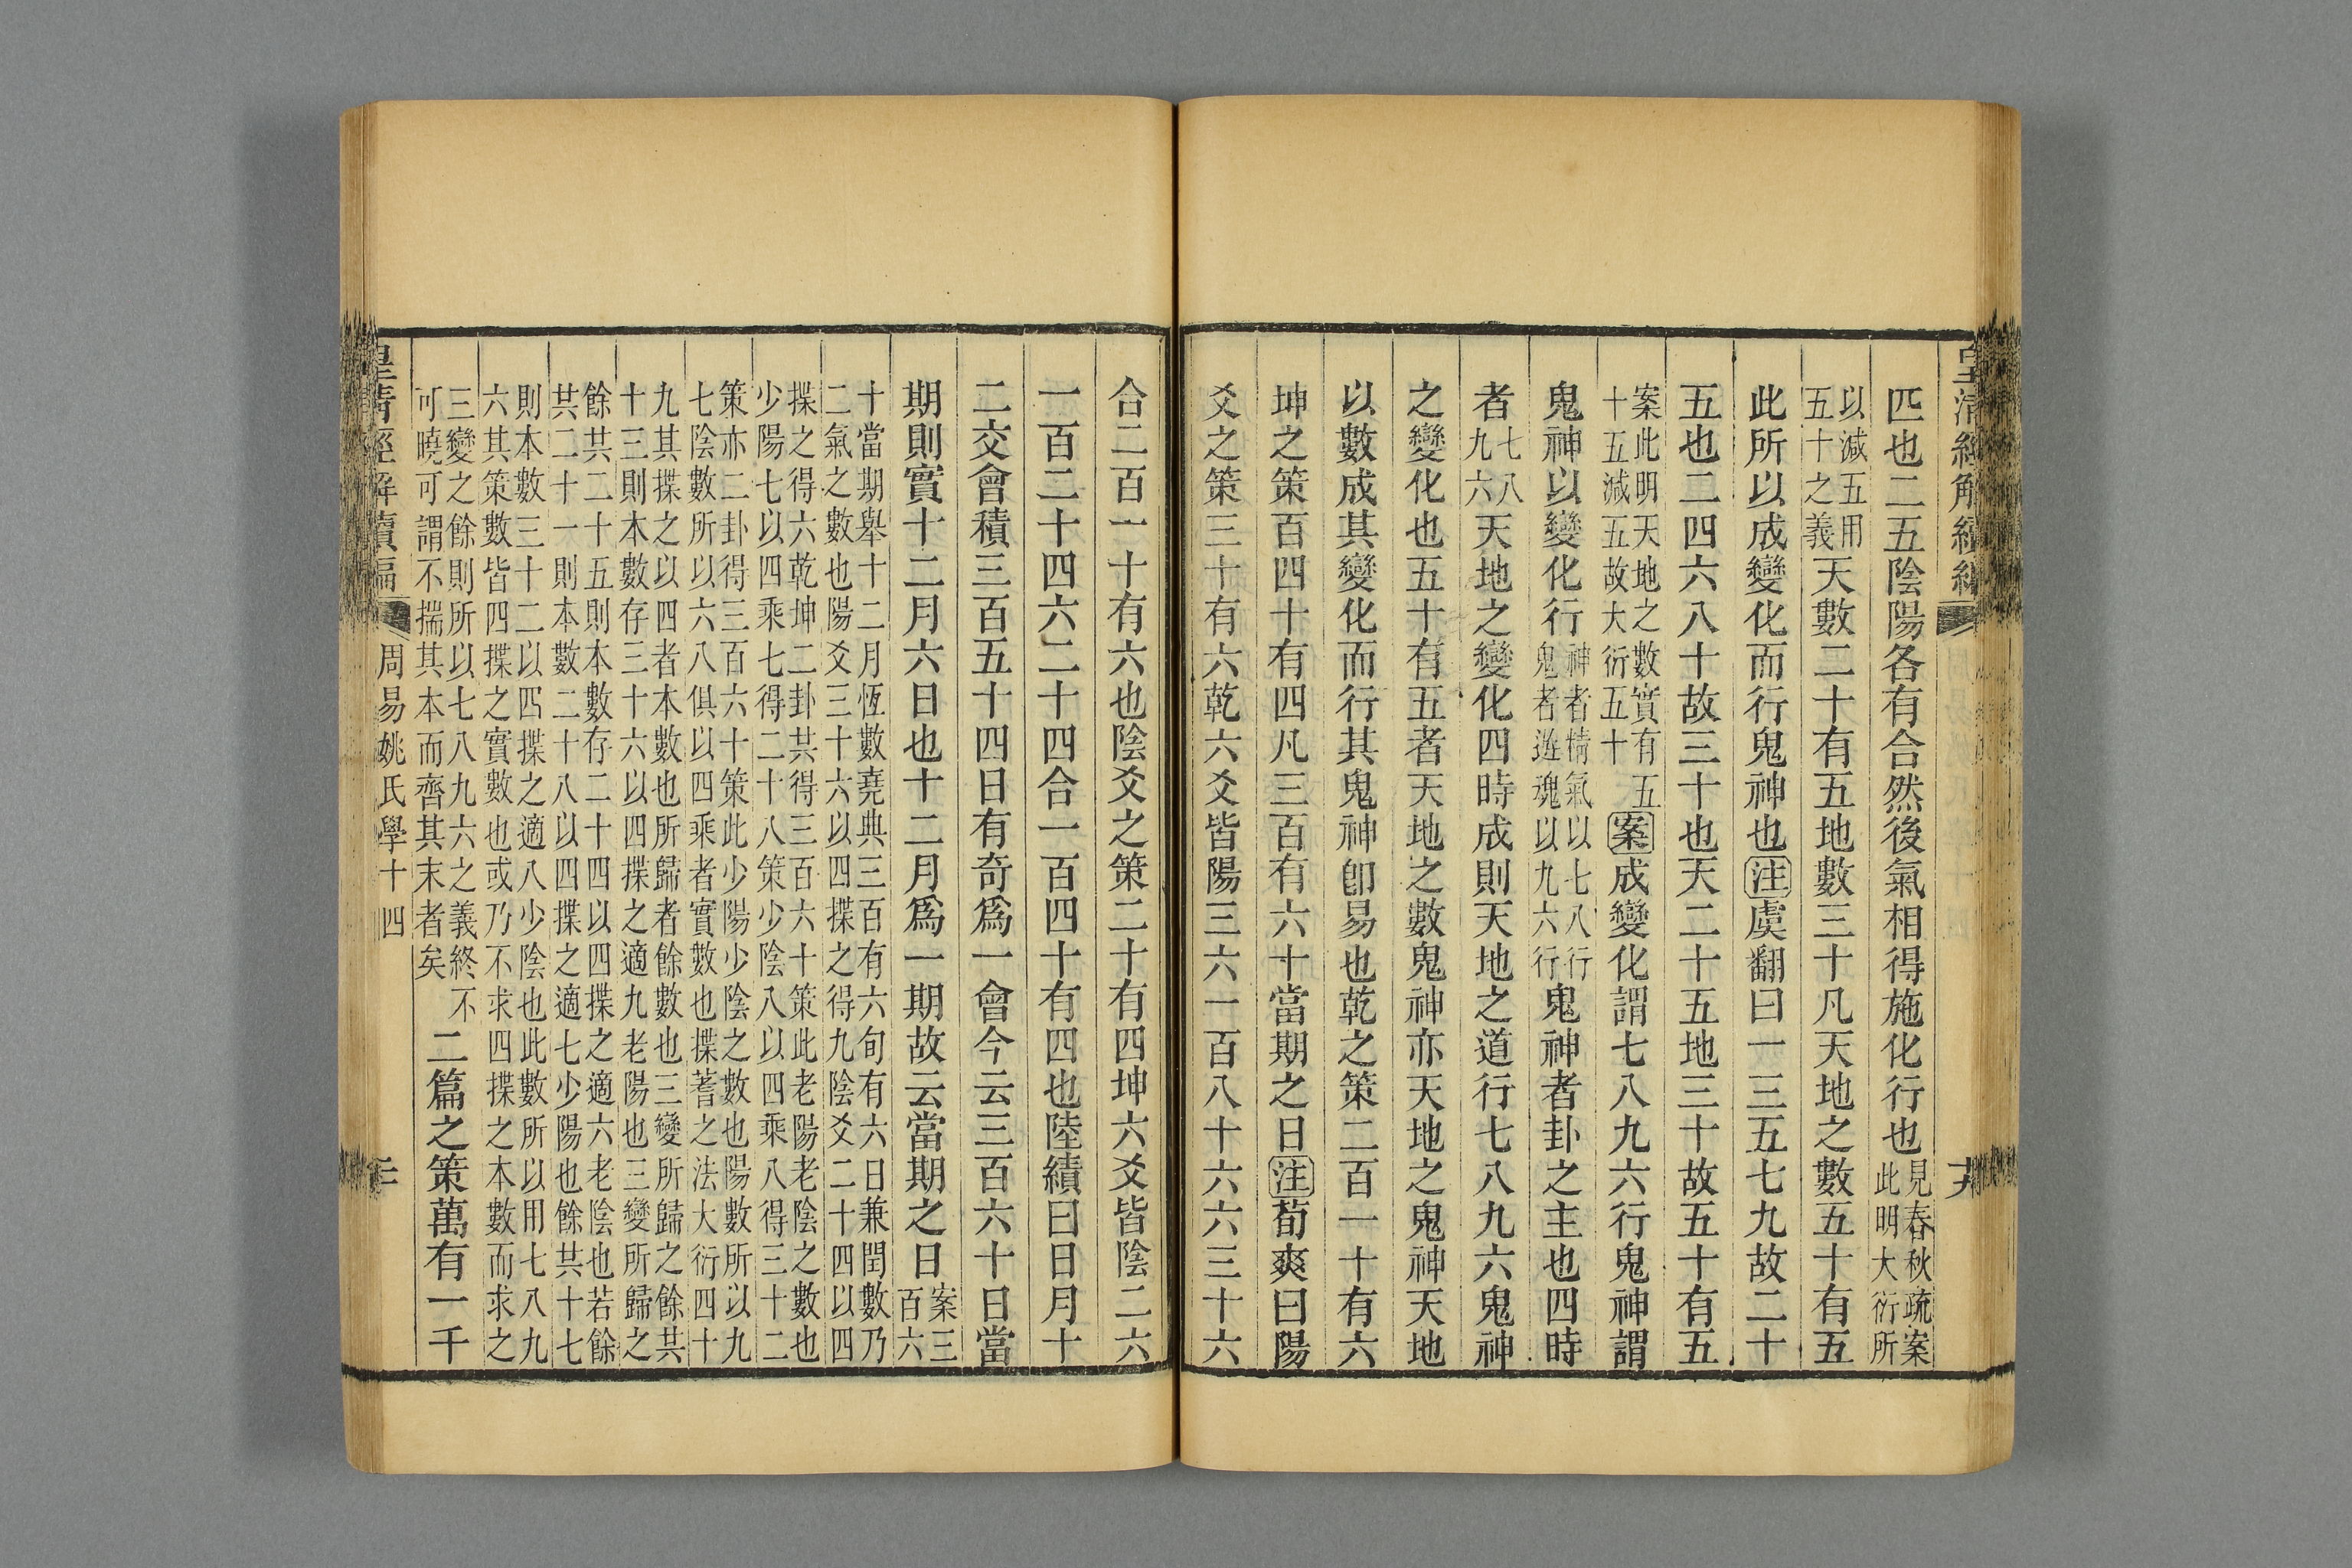 皇清經解續編
匹也二五陰陽各有合然後氣相得施化行也見春秋疏案此明大衍所
以減五用五十之義天數二十有五地數三十凡天地之數五十有五
此所以成變化而行鬼神也注虞翻曰一三五七九故二十
五也二四六八十故三十也天二十五地三十故五十有五
案此明天地之數實有五十五減五故大衍五十案成變化謂七八九六行鬼神謂
鬼神以變化行神者精氣以七八行鬼者遊魂以九六行鬼神者卦之主也四時
者七八九六天地之變化四時成則天地之道行七八九六鬼神
之變化也五十有五者天地之數鬼神亦天地之鬼神天地
以數成其變化而行其鬼神卽易也乾之策二百一十有六
坤之策百四十有四凡三百有六十當期之日注荀爽曰陽
爻之策三十有六乾六爻皆陽三六一百八十六六三十六
合二百一十有六也陰爻之策二十有四坤六爻皆陰二六
一百二十四六二十四合一百四十有四也陸績曰日月十
二交會積三百五十四日有奇爲一會今云三百六十日當
期則實十二月六日也十二月爲一期故云當期之日案三百六
十當期舉十二月恆數堯典三百有六旬有六日兼閏數乃
二氣之數也陽爻三十六以四揲之得九陰爻二十四以四
揲之得六乾坤二卦共得三百六十策此老陽老陰之數也
少陽七以四乘七得二十八策少陰八以四乘八得三十二
策亦二卦得三百六十策此少陽少陰之數也陽數所以九
七陰數所以六八俱以四乘者實數也揲蓍之法大衍四十
九其揲之以四者本數也所歸者餘數也三變所歸之餘共
十三則本數存三十六以四揲之適九老陽也三變所歸之
餘共二十五則本數存二十四以四揲之適六老陰也若餘
共二十一則本數二十八以四揲之適七少陽也餘共十七
則本數三十二以四揲之適八少陰也此數所以用七八九
六其策數皆四揲之實數也或乃不求四揲之本數而求之
三變之餘則所以七八九六之義終不
可曉可謂不揣其本而齊其末者矣二篇之策萬有一千
皇清經解續編 周易姚氏學十四